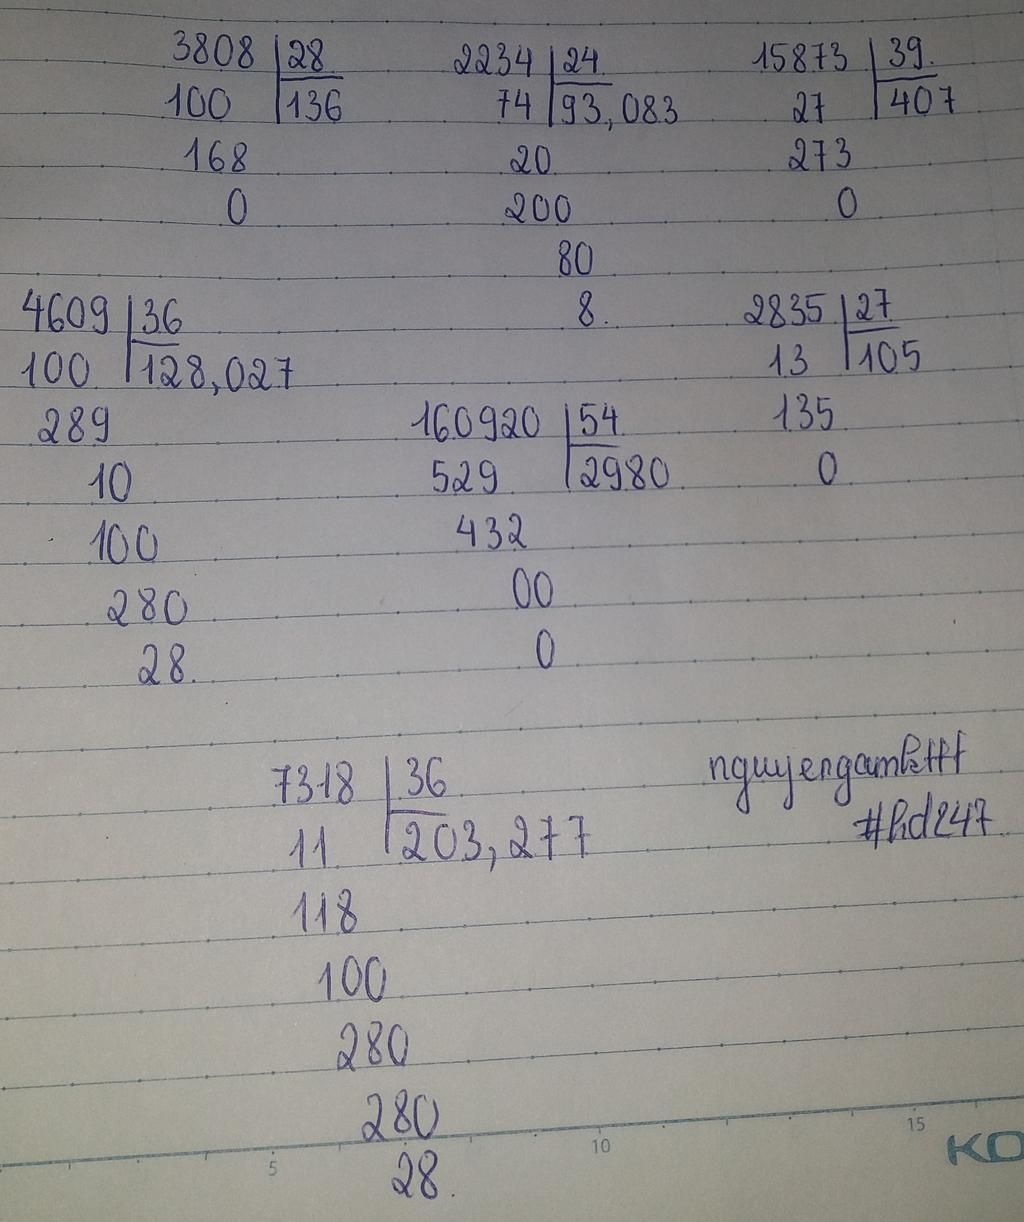 3808 28
100 136
168
0
2234 24
74 93,083
20
200
80
8.
15873 39.
27 407
273
0
4609 36
100 128,027
289
10
100
280
28.
160920 54
529 2980
432
00
0
2835 27
13 105
135
0
7318 36
11 203,277
118
100
280
280
28.
#hd247
5 10 15
KO